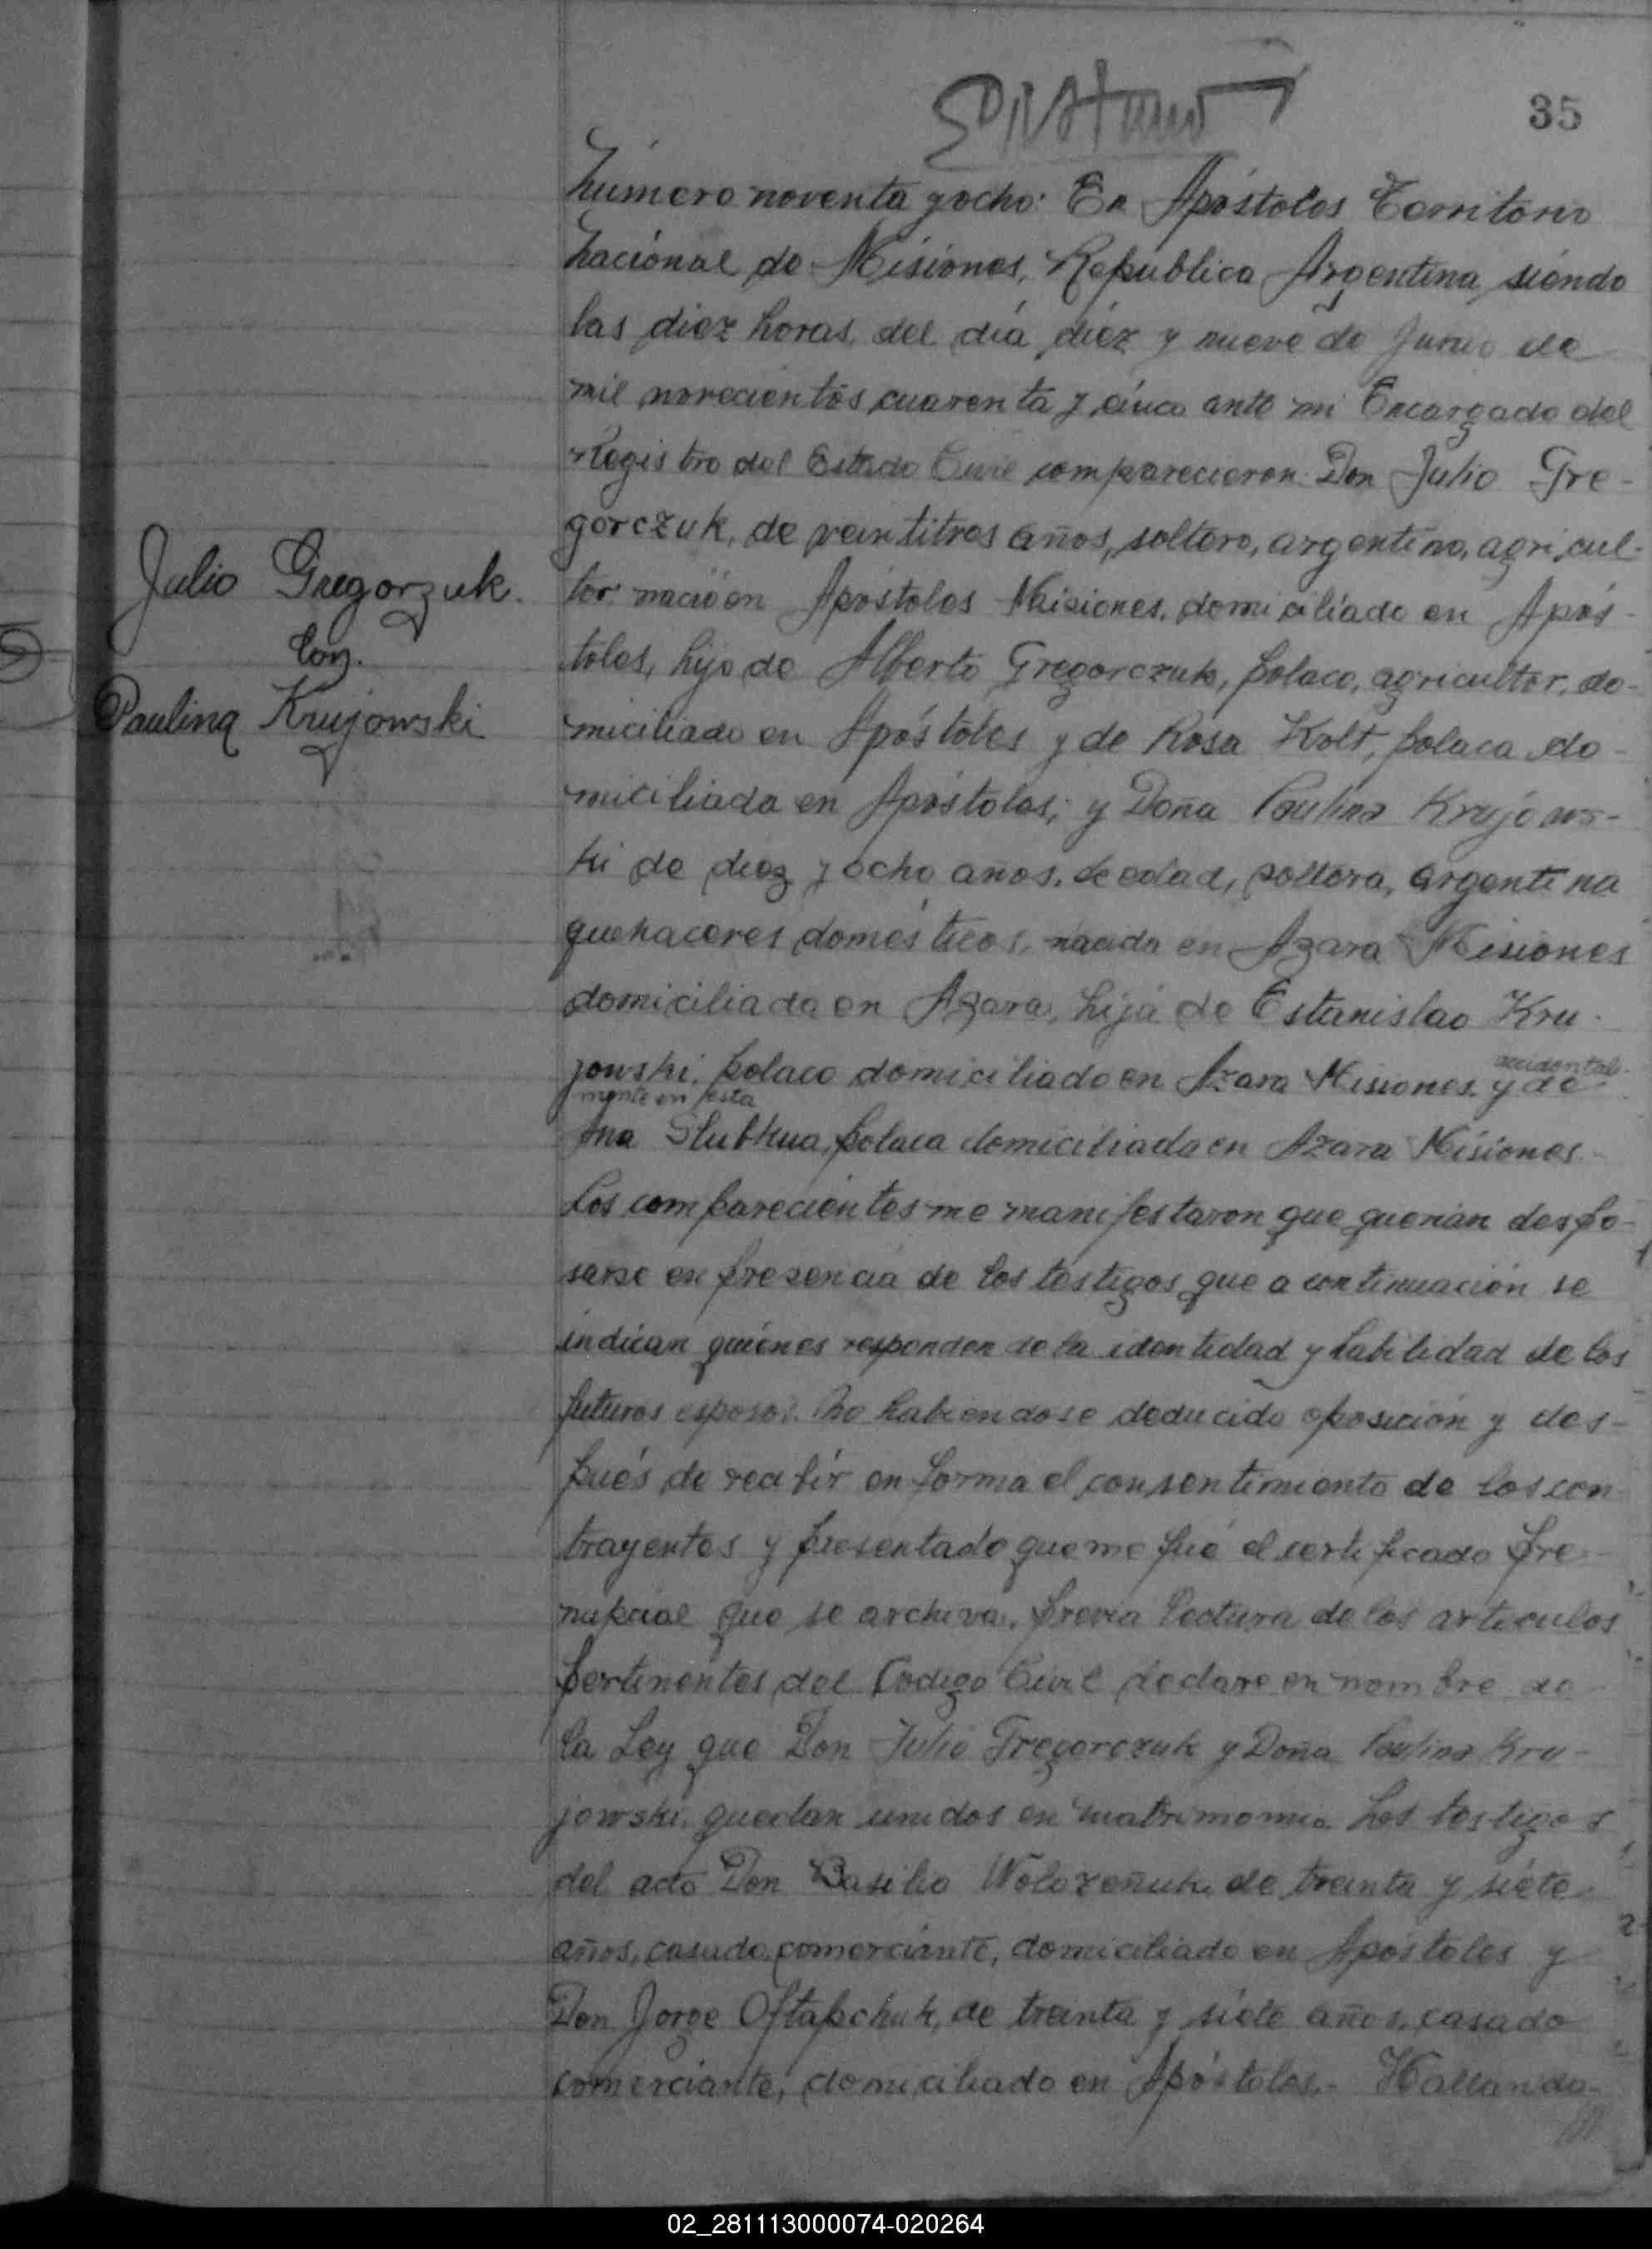 35
Número noventa y ocho: En Apóstoles Territorio
Nacional de Misiones, República Argentina, siendo
las diez horas, del día diez y nueve de Junio de
mil novecientos cuarenta y cinco ante mi Encargado del
Registro del Estado Civil comparecieron: Don Julio Gre-
gorczuk, de veintitres años, soltero, argentino, agricul-
tor nació en Apóstoles Misiones, domiciliado en Após-
toles, hijo de Alberto Gregorczuk, polaco, agricultor, do-
miciliado en Apóstoles y de Rosa Kolt, polaca do-
miciliada en Apóstoles; y Doña Paulina Krujows-
ki de diez y ocho años, de edad, soltera, argentina
quehaceres domésticos, nacida en Azara Misiones
domiciliada en Azara, hija de Estanislao Kru-
jowski, polaco domiciliado en Azara Misiones, y de
accidental-
mente en esta
Ana Slubkua, polaca domiciliada en Azara Misiones.-
Los comparecientes me manifestaron que querian despo-
sarse en presencia de los testigos que a continuación se
indican quiénes responden de la identidad y habilidad de los
futuros esposos. No habiendose deducido oposición y des-
pués de recibir en forma el consentimiento de los con
trayentes y presentado que me fué el certificado pre-
nupcial que se archiva, previa lectura de los articulos
pertinentes del Codigo Civil declare en nombre de
la Ley que Don Julio Gregorczuk y Doña Paulina Kru-
jowski, quedan unidos en matrimonio. Los testigos
del acto Don Basilio Wolozeñuk de treinta y siete
años, casado, comerciante, domiciliado en Apóstoles y
Don Jorge Oftapchuk, de treinta y siete años, casado
comerciante, domiciliado en Apóstoles.- Hallando-
Julio Gregorzuk.
Con.
Paulina Krujowski
02_281113000074-020264